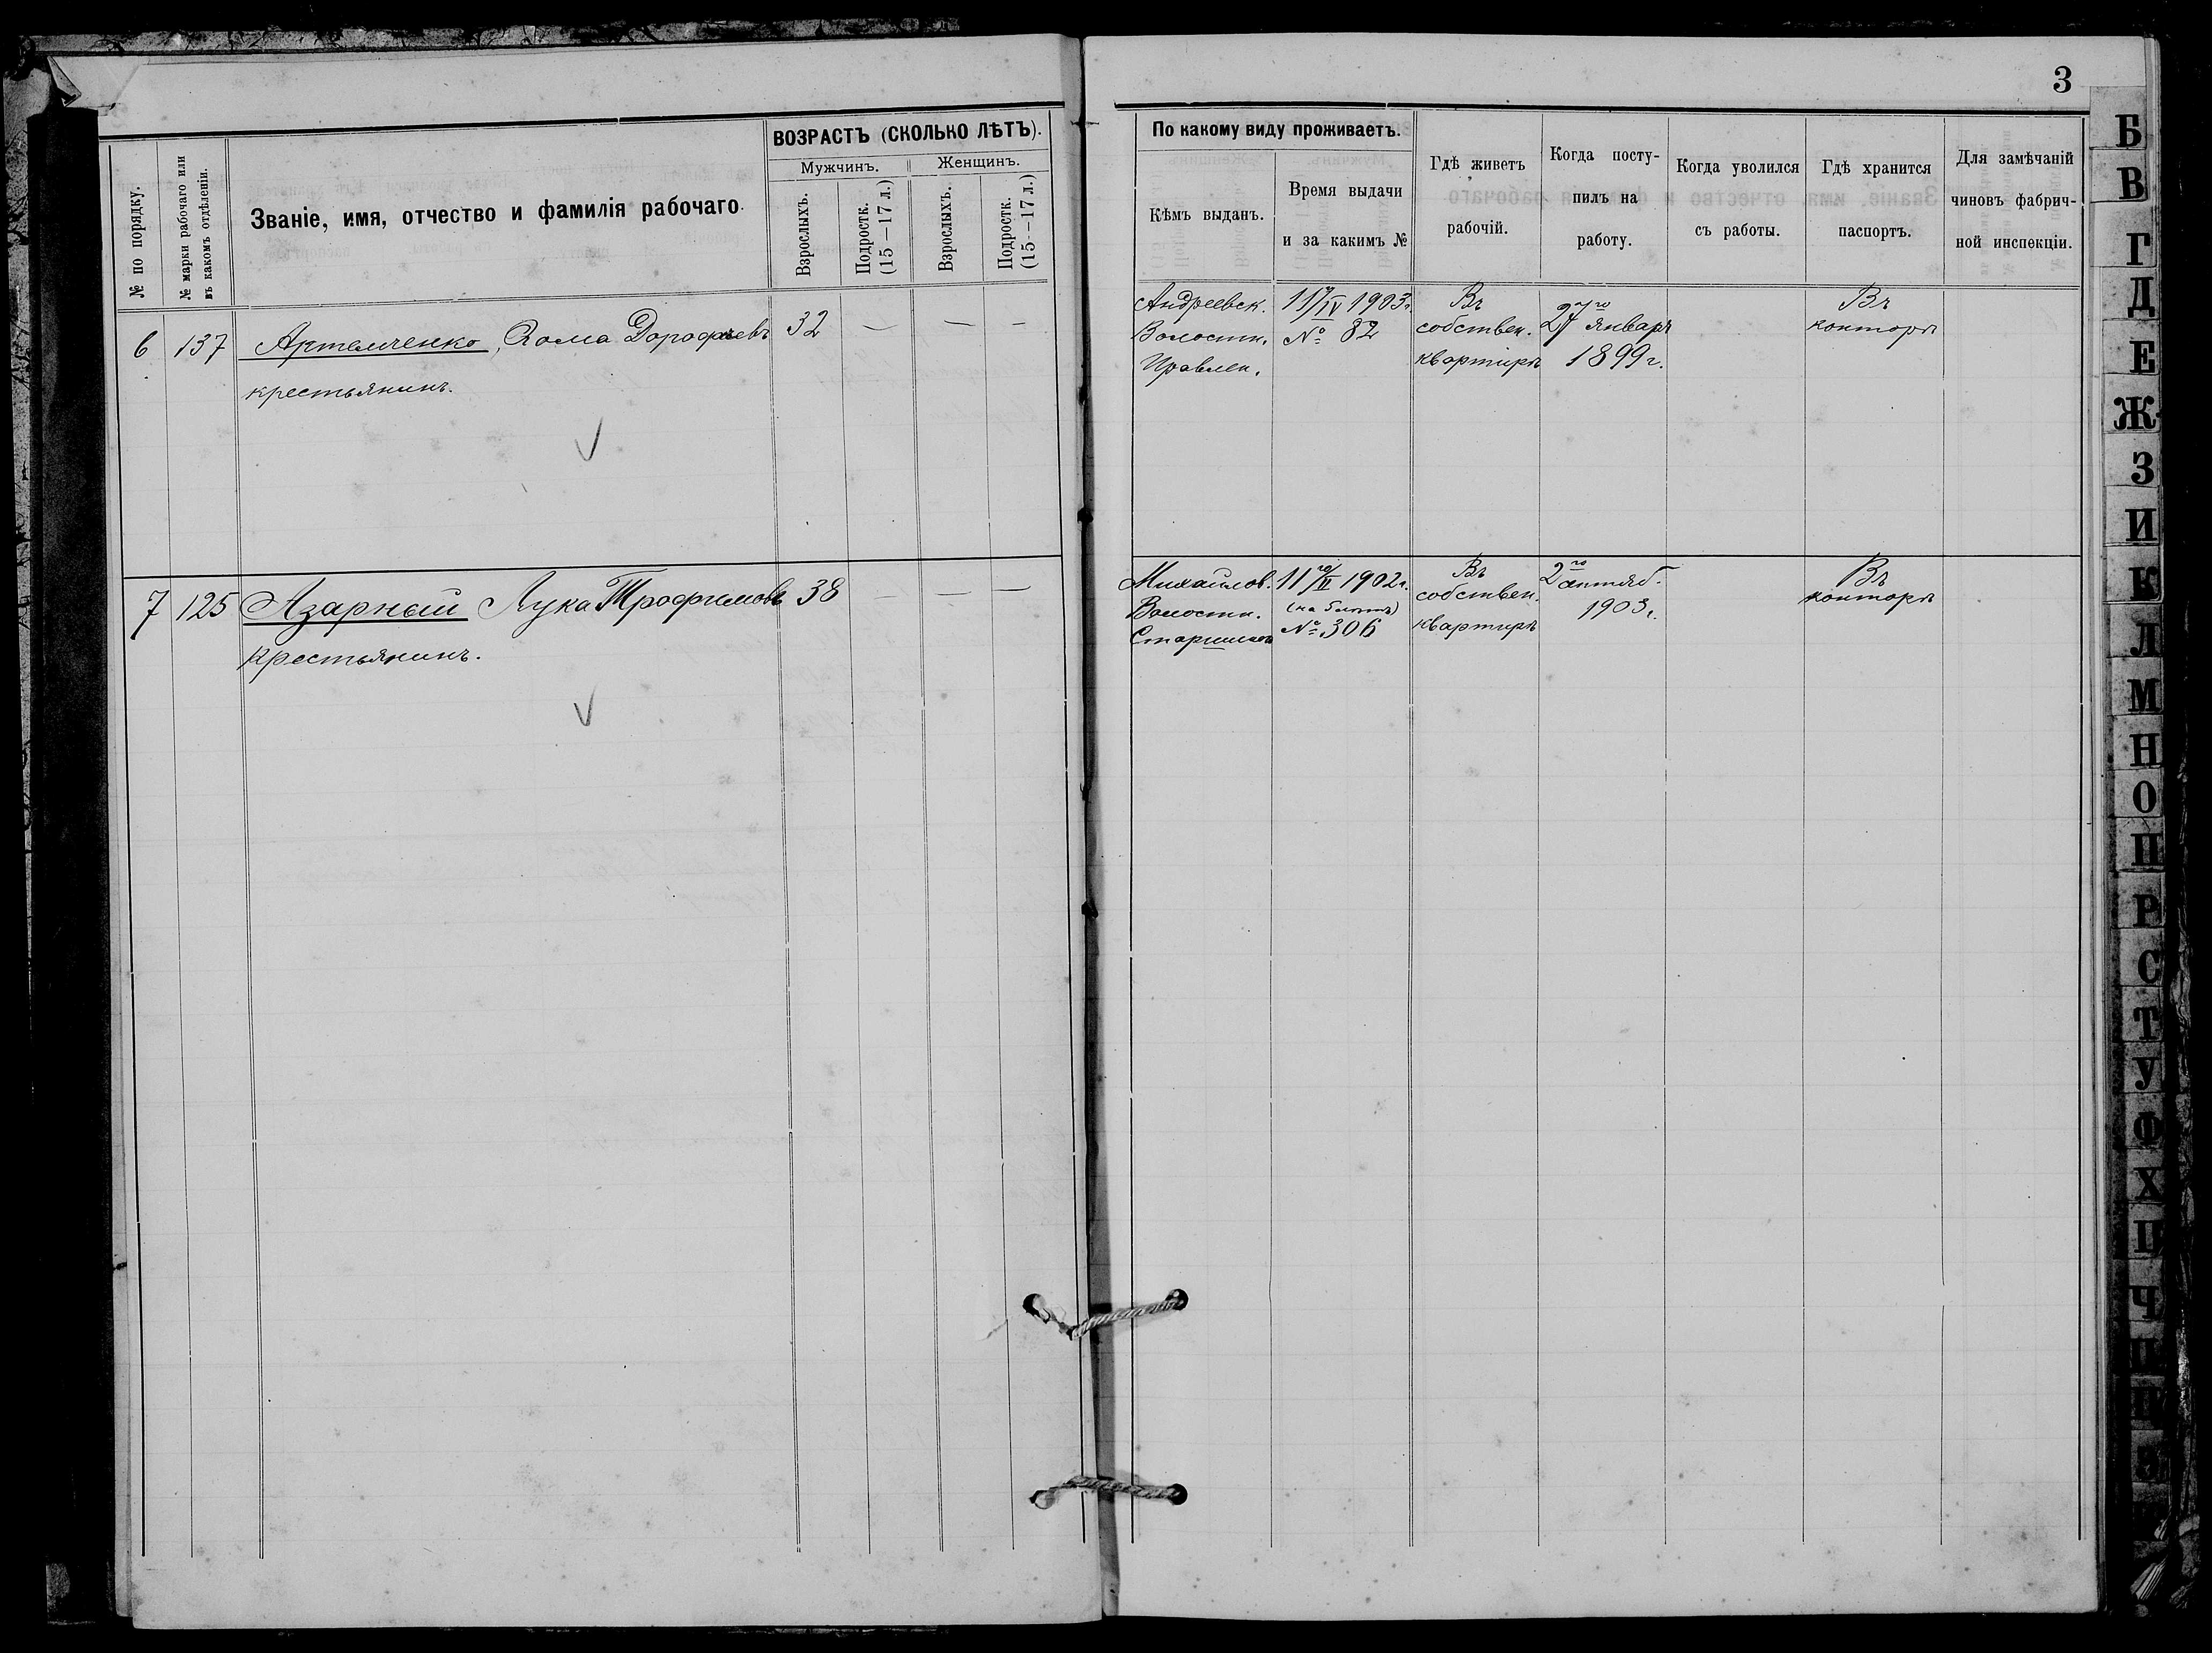 3
№ по порядку.
№ марки рабочаго или
въ какомъ отдѣленіи.
Званіе, имя, отчество и фамилія рабочаго.
ВОЗРАСТЪ (СКОЛЬКО ЛѢТЪ).
Мужчинъ.
Женщинъ.
Взрослыхъ.
Подростк.
(15—17 л.)
Взрослыхъ.
Подростк.
(15—17 л.)
По какому виду проживаетъ.
Кѣмъ выданъ.
Время выдачи
и за какимъ №
Гдѣ живетъ
рабочій.
Когда посту-
пилъ на
работу.
Когда уволился
съ работы.
Гдѣ хранится
паспортъ.
Для замѣчаній
чиновъ фабрич-
ной инспекціи.
6 137 Артемченко, Ѳома Дорофѣевъ 32 — — —
крестьянинъ.
Андреевск.
Волостн.
Правлен.
11/IV 1903 г.
№ 82
Въ
собствен.
квартирѣ
27го Января
1899 г.
Въ
конторѣ
7 125 Азарный Лука Трофимовъ 38 — — —
крестьянинъ.
Михайлов.
Волостн.
Старшиной
11го/II 1902 г.
(на 5 лѣтъ)
№ 306
Въ
собствен.
квартирѣ
2го
1903 г.
Въ
конторѣ
Б
В
Г
Д
Е
Ж
З
И
К
Л
М
Н
О
П
Р
С
Т
У
Ф
Х
Ц
Ч